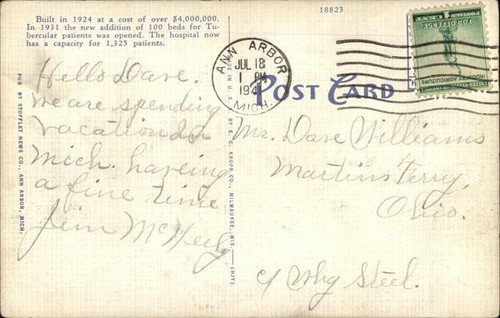 Built in 1924 at a cost of over $4,000,000.
In 1931 the new addition of 100 beds for Tu-
bercular patients was opened. The hospital now
has a capacity for 1,325 patients.
18823
ANN ARBOR
JUL 18
1 PM
194
MICH.
FOR DEFENSE
POST CARD
Hello Dave.
We are spending
vacation in
Mich. having
a fine time
Jim
Mr. Dave Williams
Martins Ferry,
Ohio.
c/ Whg Steel.
PUB. BY STOFLET NEWS CO., ANN ARBOR, MICH.
MADE IN U.S.A. BY E. C. KROPP CO., MILWAUKEE, WIS.